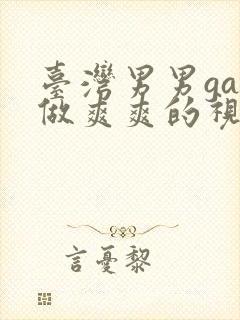 臺灣男男ga
做爽爽的視
言憂黎